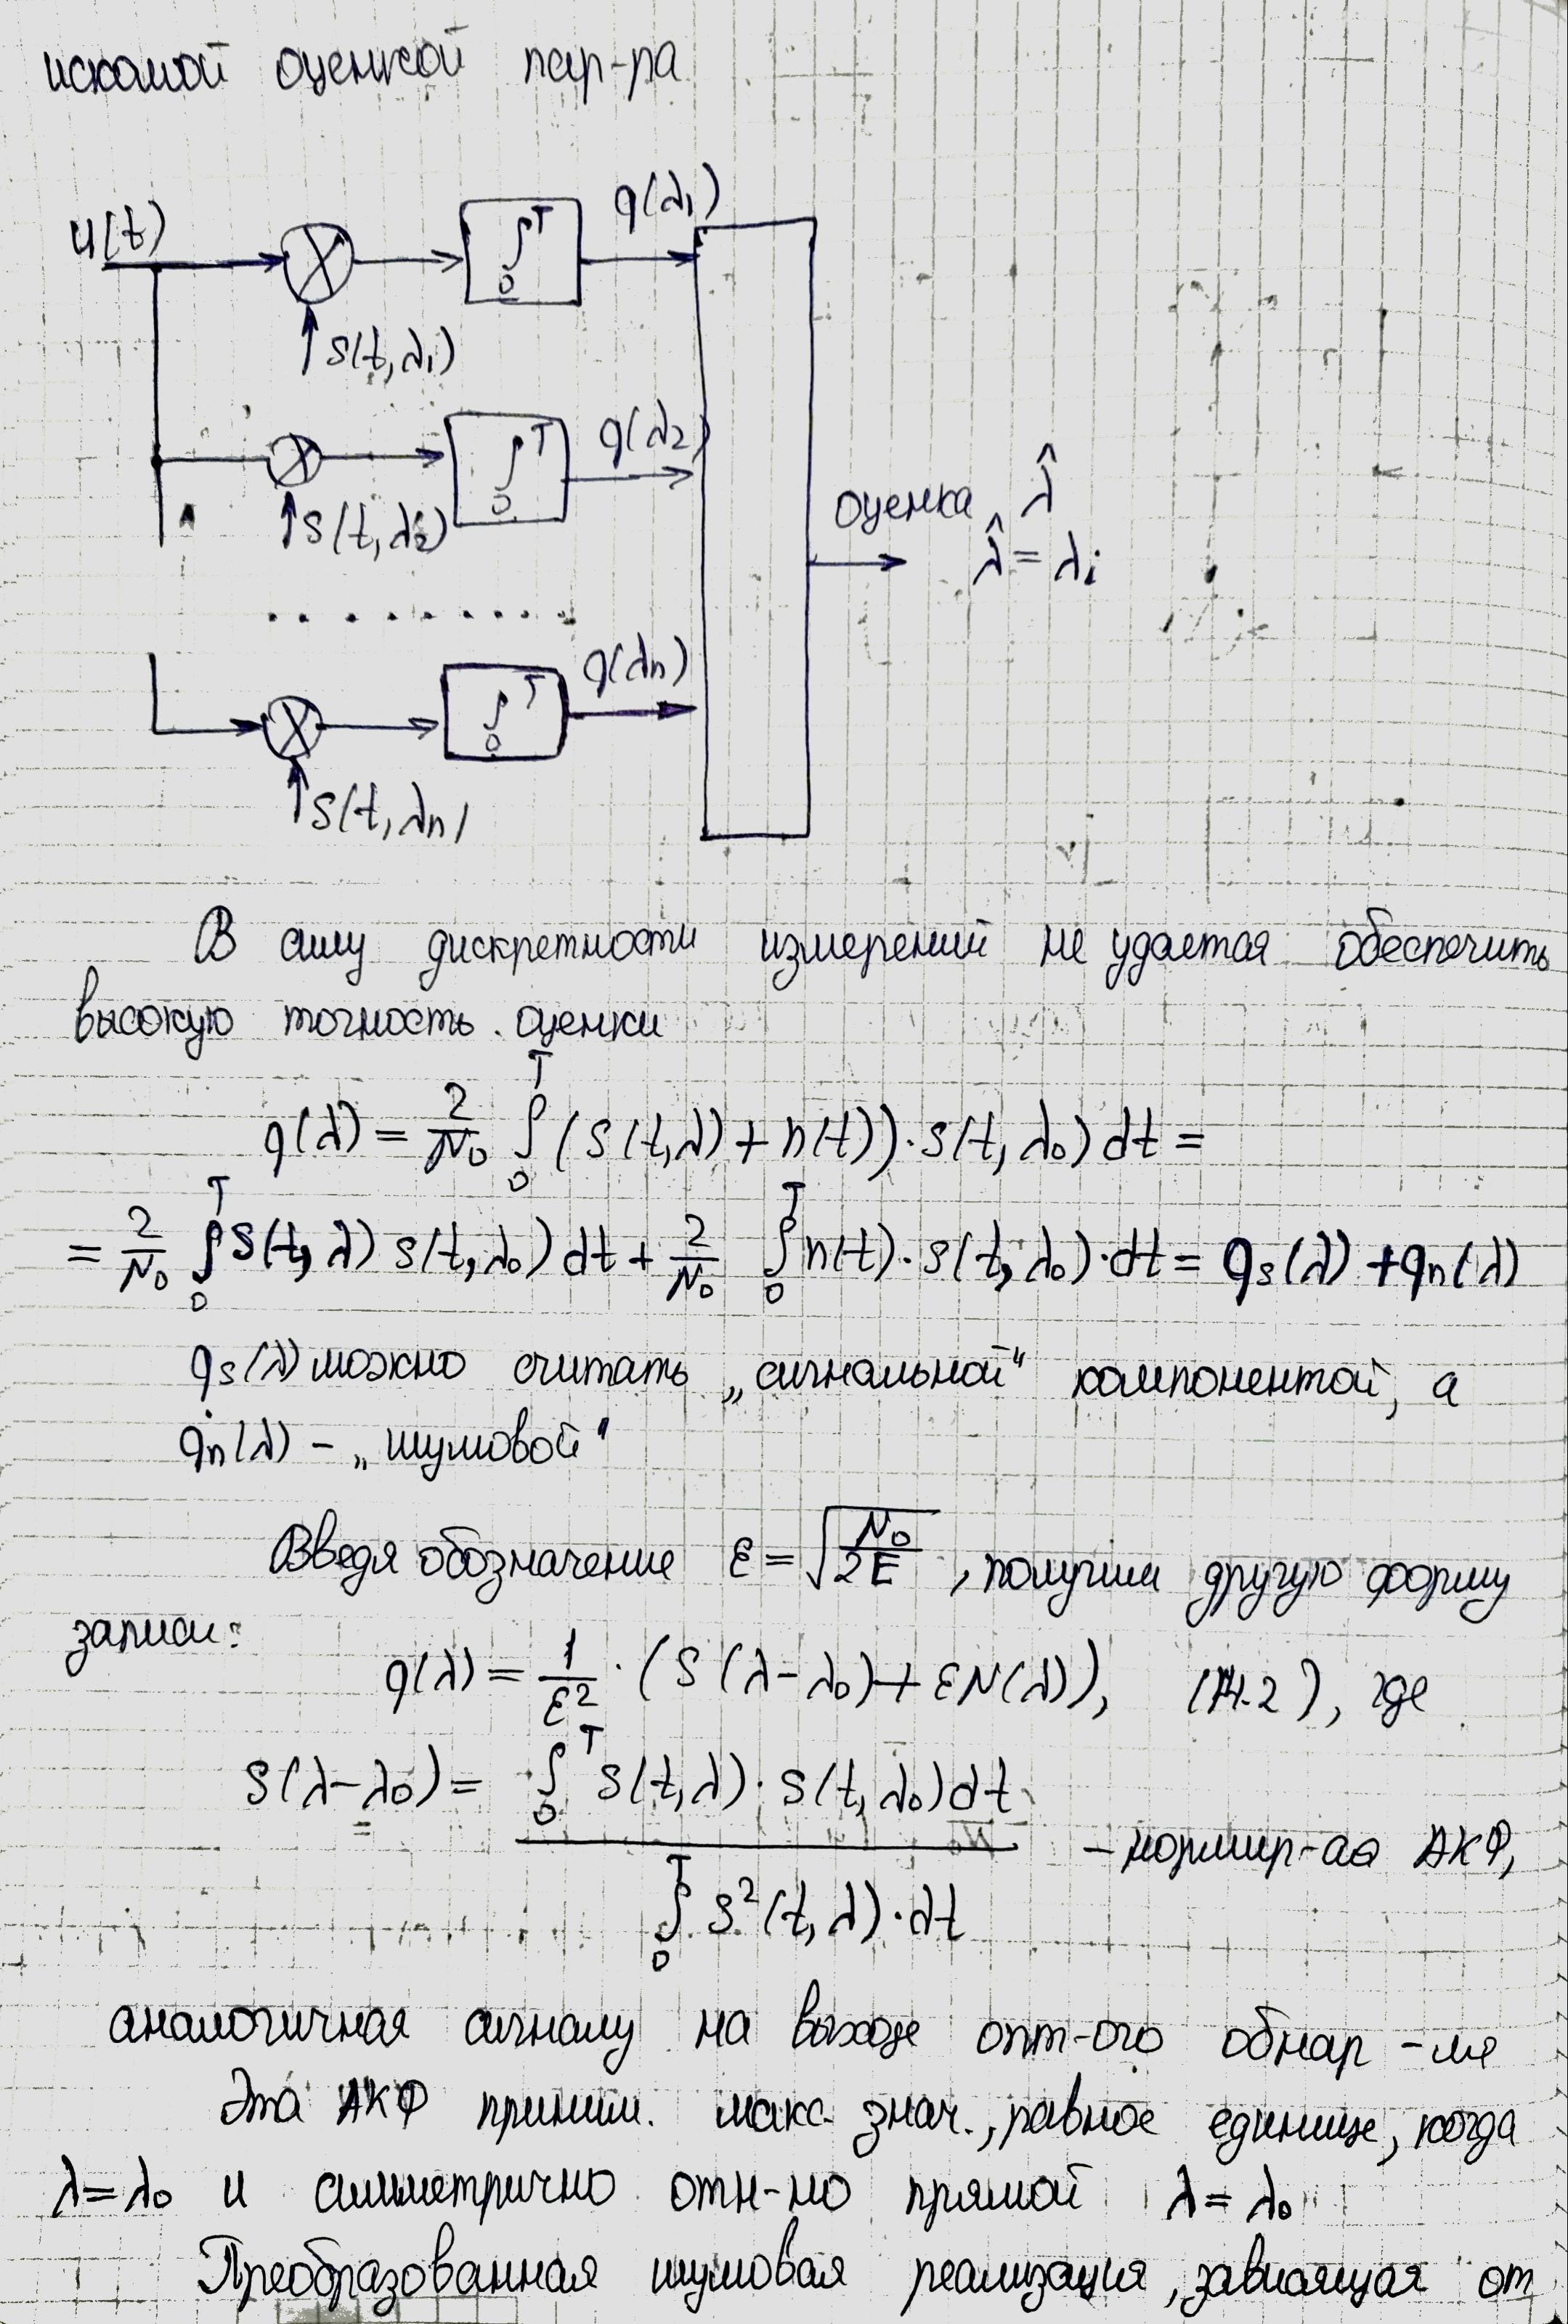 искомой оценкой пар-ра
u(t)
q(λ₁)
∫₀ᵀ
S(t, λ₁)
q(λ₂)
∫₀ᵀ
S(t, λ₂)
оценка λ̂
λ̂ = λi
. . . . . . . . .
q(λn)
∫₀ᵀ
S(t, λn)
В силу дискретности измерений не удается обеспечить
высокую точность оценки
q(λ) = 2/N₀ ∫₀ᵀ (S(t,λ) + n(t))·S(t, λ₀) dt =
= 2/N₀ ∫₀ᵀ S(t, λ) S(t, λ₀) dt + 2/N₀ ∫₀ᵀ n(t)·S(t, λ₀)·dt = qs(λ) + qn(λ)
qs(λ) можно считать „сигнальной" компонентой, а
qn(λ) – „шумовой"
Введя обозначение ε = √(N₀/2E), получим другую форму
записи:
q(λ) = 1/ε² · (S(λ – λ₀) + εN(λ)), (14.2), где
S(λ – λ₀) = ∫₀ᵀ S(t, λ)· S(t, λ₀) dt
– нормир-ая АКФ,
∫₀ᵀ S²(t, λ)·dt
аналогичная сигналу на выходе опт-ого обнар-ля
Эта АКФ приним. макс. знач., равное единице, когда
λ = λ₀ и симметрично отн-но прямой λ = λ₀
Преобразованная шумовая реализация, зависящая от